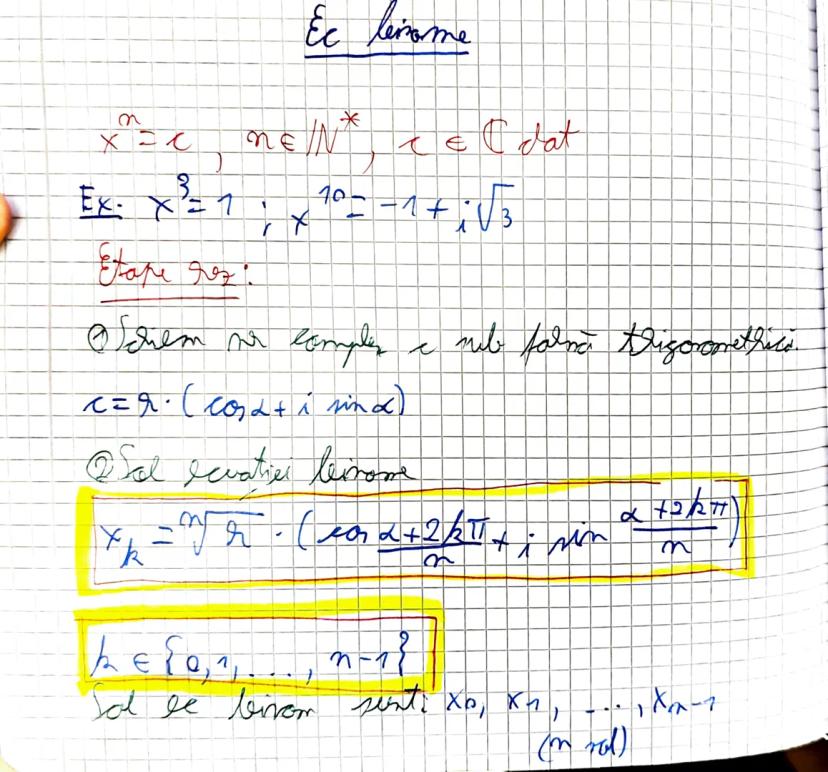 Ec binome
xⁿ = c, n ∈ ℕ*, c ∈ ℂ dat
Ex: x³ = 1 ; x¹⁰ = -1 + i√3
Etape rez:
① Scriem nr complex c sub formă trigonometrică.
c = r · (cos α + i sin α)
② Sol ecuației binome
x_k = ⁿ√r · (cos (α+2kπ)/n + i sin (α+2kπ)/n)
k ∈ {0, 1, ..., n-1}
Sol ec binom sunt: x₀, x₁, ..., xₙ₋₁
(n sol)